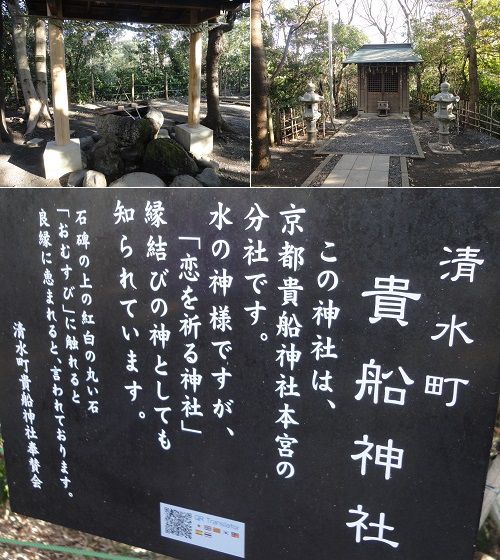 清水町
貴船神社
この神社は、
京都貴船神社本宮の
分社です。
水の神様ですが、
「恋を祈る神社」
縁結びの神としても
知られています。
石碑の上の紅白の丸い石
「おむすび」に触れると
良縁に恵まれると、言われております。
清水町貴船神社奉賛会
QR Translator